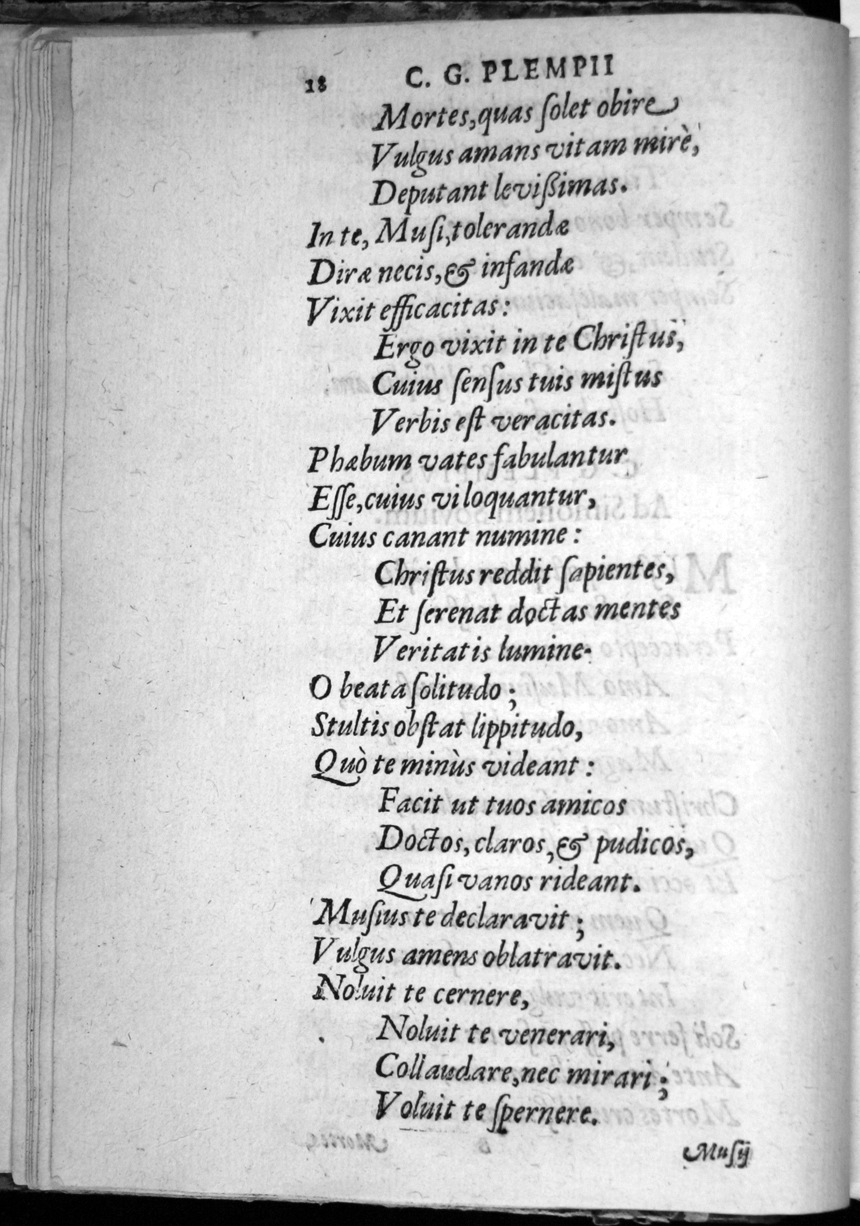 18 C. G. PLEMPII
Mortes, quas ſolet obire
Vulgus amans vitam mirè,
Deputant leviſſimas.
In te, Muſi, tolerandæ
Diræ necis, & infandæ
Vixit efficacitas:
Ergo vixit in te Chriſtus,
Cuius ſenſus tuis miſtus
Verbis eſt veracitas.
Phæbum vates fabulantur
Eſſe, cuius vi loquantur,
Cuius canant numine:
Chriſtus reddit ſapientes,
Et ſerenat doctas mentes
Veritatis lumine.
O beata ſolitudo;
Stultis obſtat lippitudo,
Quò te minùs videant:
Facit ut tuos amicos
Doctos, claros, & pudicos,
Quaſi vanos rideant.
Muſius te declaravit;
Vulgus amens oblatravit.
Noluit te cernere,
Noluit te venerari,
Collaudare, nec mirari;
Voluit te ſpernere.
Muſij